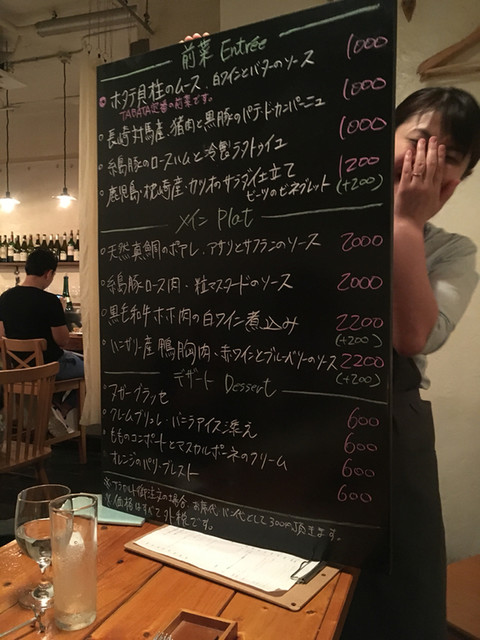 前菜 Entrée
ホタテ貝柱のムース、白ワインとバターのソース 1000
TABATA定番の前菜です。
長崎対馬産、猪肉と黒豚のパテ・ド・カンパーニュ 1000
糸島豚のロースハムと冷製ラタトゥイユ 1000
鹿児島・枕崎産・カツオのサラダ仕立て 1200
ビーツのビネグレット (+200)
メイン Plat
天然真鯛のポアレ、アサリとサフランのソース 2000
糸島豚ロース肉・粒マスタードのソース 2000
黒毛和牛ホホ肉の白ワイン煮込み 2200
(+200)
ハンガリー産鴨胸肉、赤ワインとブルーベリーのソース 2200
(+200)
デザート Dessert
ヌガーグラッセ 600
クレームブリュレ・バニラアイス添え 600
もものコンポートとマスカルポーネのクリーム 600
オレンジのパリ・ブレスト 600
※アラカルト御注文の場合、お席代、パン代として300円頂きます。
※価格はすべて外税です。